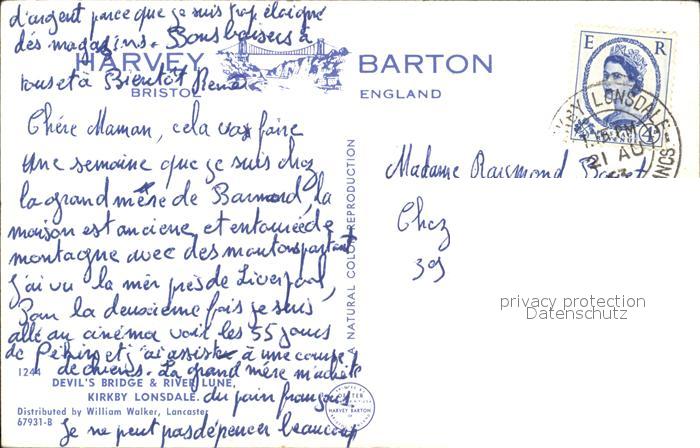 d'argent parce que je suis trop éloigné
des magasins. Bons baisers à
HARVEY BARTON
tous et à Bientôt René
BRISTOL ENGLAND
Chère Maman, cela va faire
une semaine que je suis chez
la grand mère de Barnard, la
maison est anciene, et entourée de
montagne avec des moutons partout
j'ai vu la mer près de Liverpool,
Pour la deuxième fois je suis
allé au cinéma voir les 55 jours
de Pékin et j'ai assister à une course
de chiens. La grand mère m'achète
du pain français.
Je ne peut pas dépenser beaucoup
1244
DEVIL'S BRIDGE & RIVER LUNE,
KIRKBY LONSDALE.
Distributed by William Walker, Lancaster
67931-B
NATURAL COLOR REPRODUCTION
HARVEY BARTON
E R
4D
KIRKBY LONSDALE
PM
21 AU
LANCS.
Madame Raymond
Chez
39
privacy protection
Datenschutz